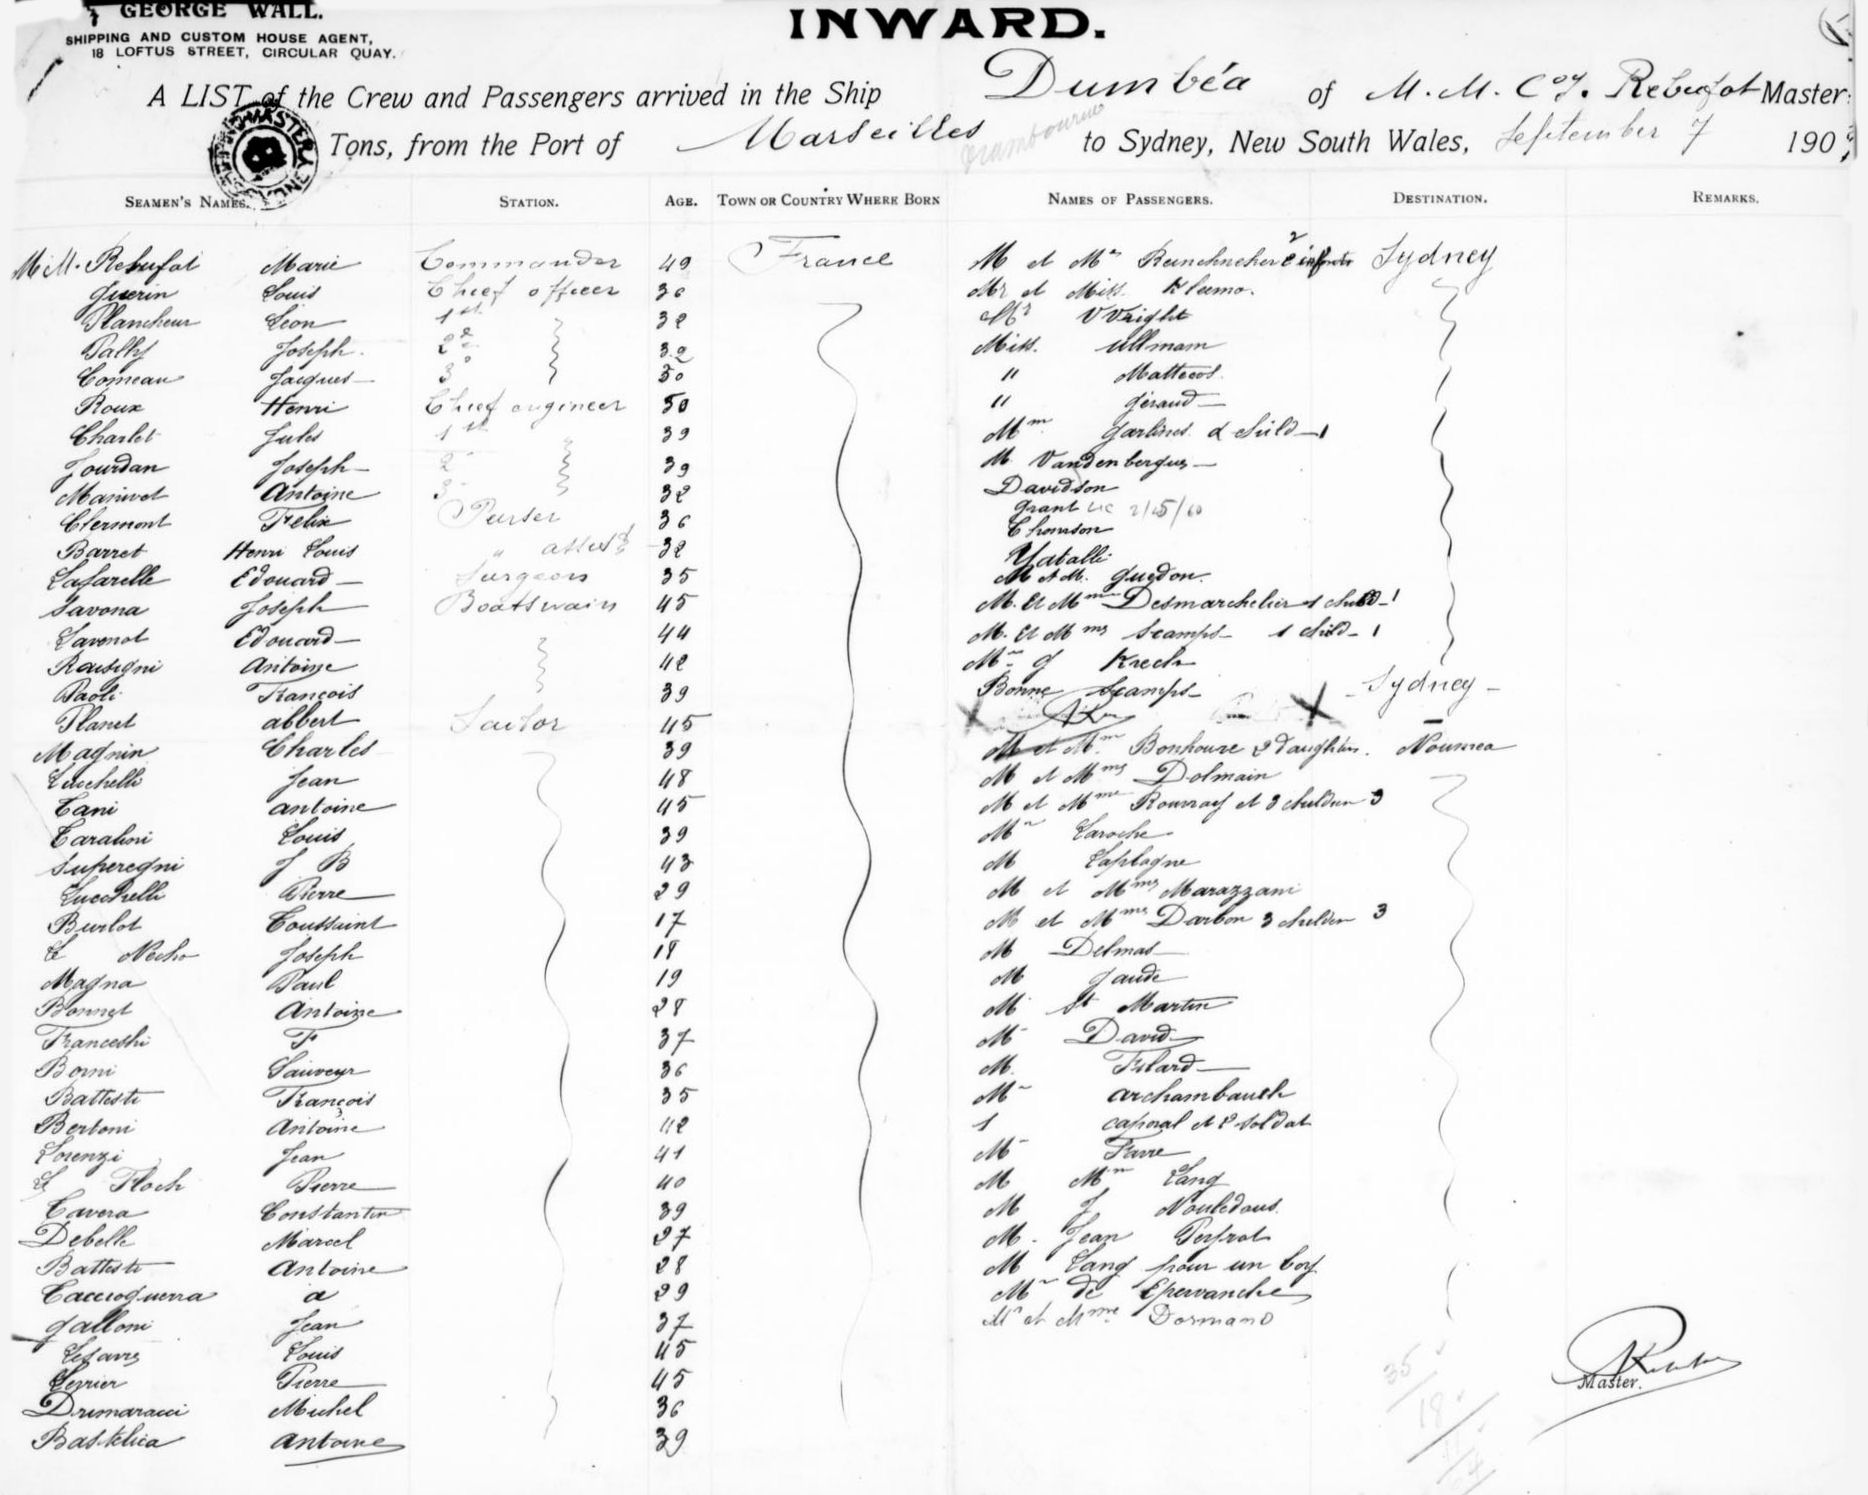 GEORGE WALL.
SHIPPING AND CUSTOM HOUSE AGENT,
18 LOFTUS STREET, CIRCULAR QUAY.
INWARD.
A LIST of the Crew and Passengers arrived in the Ship Dumbéa of M. M. Coy. Rebufat Master
Tons, from the Port of Marseilles to Sydney, New South Wales, September 7 190
SEAMEN'S NAMES. STATION. AGE. TOWN OR COUNTRY WHERE BORN NAMES OF PASSENGERS. DESTINATION. REMARKS.
M.M. Rebufat Marie Commander 49 France M et Mme 2 Sydney
Guerin Louis Chief officer 36 Mr et Miss. Kleemo.
Plancheur Léon 1st 32 Mr Wright
Pally Joseph. 2d 32 Miss. Ullmam
Comeau Jacques 3d 50 " Matteos.
Roux Henri Chief engineer 50 " Géraud
Charlet Jules 1st 39 Mm Garlines & child 1
Jourdan Joseph 2 39 M. Vandenbergus
Marivot Antoine 3 32 Davidson
Clermont Felix Purser 36 Grant
Barret Henri Louis " 32 Thomson
Lafarelle Edouard Surgeon 35 Yatalli
M et M. Guedon.
Savona Joseph Boatswain 45 M. et Mme Desmarchelier 1 child 1
Lavenot Edouard 44 M. et Mme Scamps 1 child 1
Rousigni Antoine 42 Mr J Krech
Paoli François 39 Bonne Scamps Sydney
Planet Albert Sailor 45
Magnin Charles 39 M et Mme Bonhoure 2 daughters. Noumea
Lucchelli Jean 48 M et Mme Dolmain
Cani Antoine 45 M et Mme Rouvray et 3 children 3
Carabini Louis 39 Mr Laroche
Superegni J B 43 M Laplagne
Lucchelli Pierre 29 M et Mme Marazzani
Burlot Toussaint 17 M et Mme Darbon 3 children 3
Le Necho Joseph 18 M Delmas
Magna Paul 19 M Gaude
Bonnet Antoine 28 M St Martin
Franceshi F 37 M David
Borni Sauveur 36 M. Filard
Battesti François 35 M Archambault
Bertoni Antoine 42 1 caporal et 2 soldat
Lorenzi Jean 41 M Farre
Le Floch Pierre 40 M Mm Lang
Cavera Constantin 39 M J Nouledous.
Debelle Marcel 27 M. Jean Peyrot
Battesti Antoine 28 M Lang pour un boy
Cacciaguerra A 29 Mr de Epervanche
Galloni Jean 37 Mr et Mme Dormand
Lefavre Louis 45
Lerrier Pierre 45
Master.
Drimaracci Michel 36
Bastelica Antoine 39